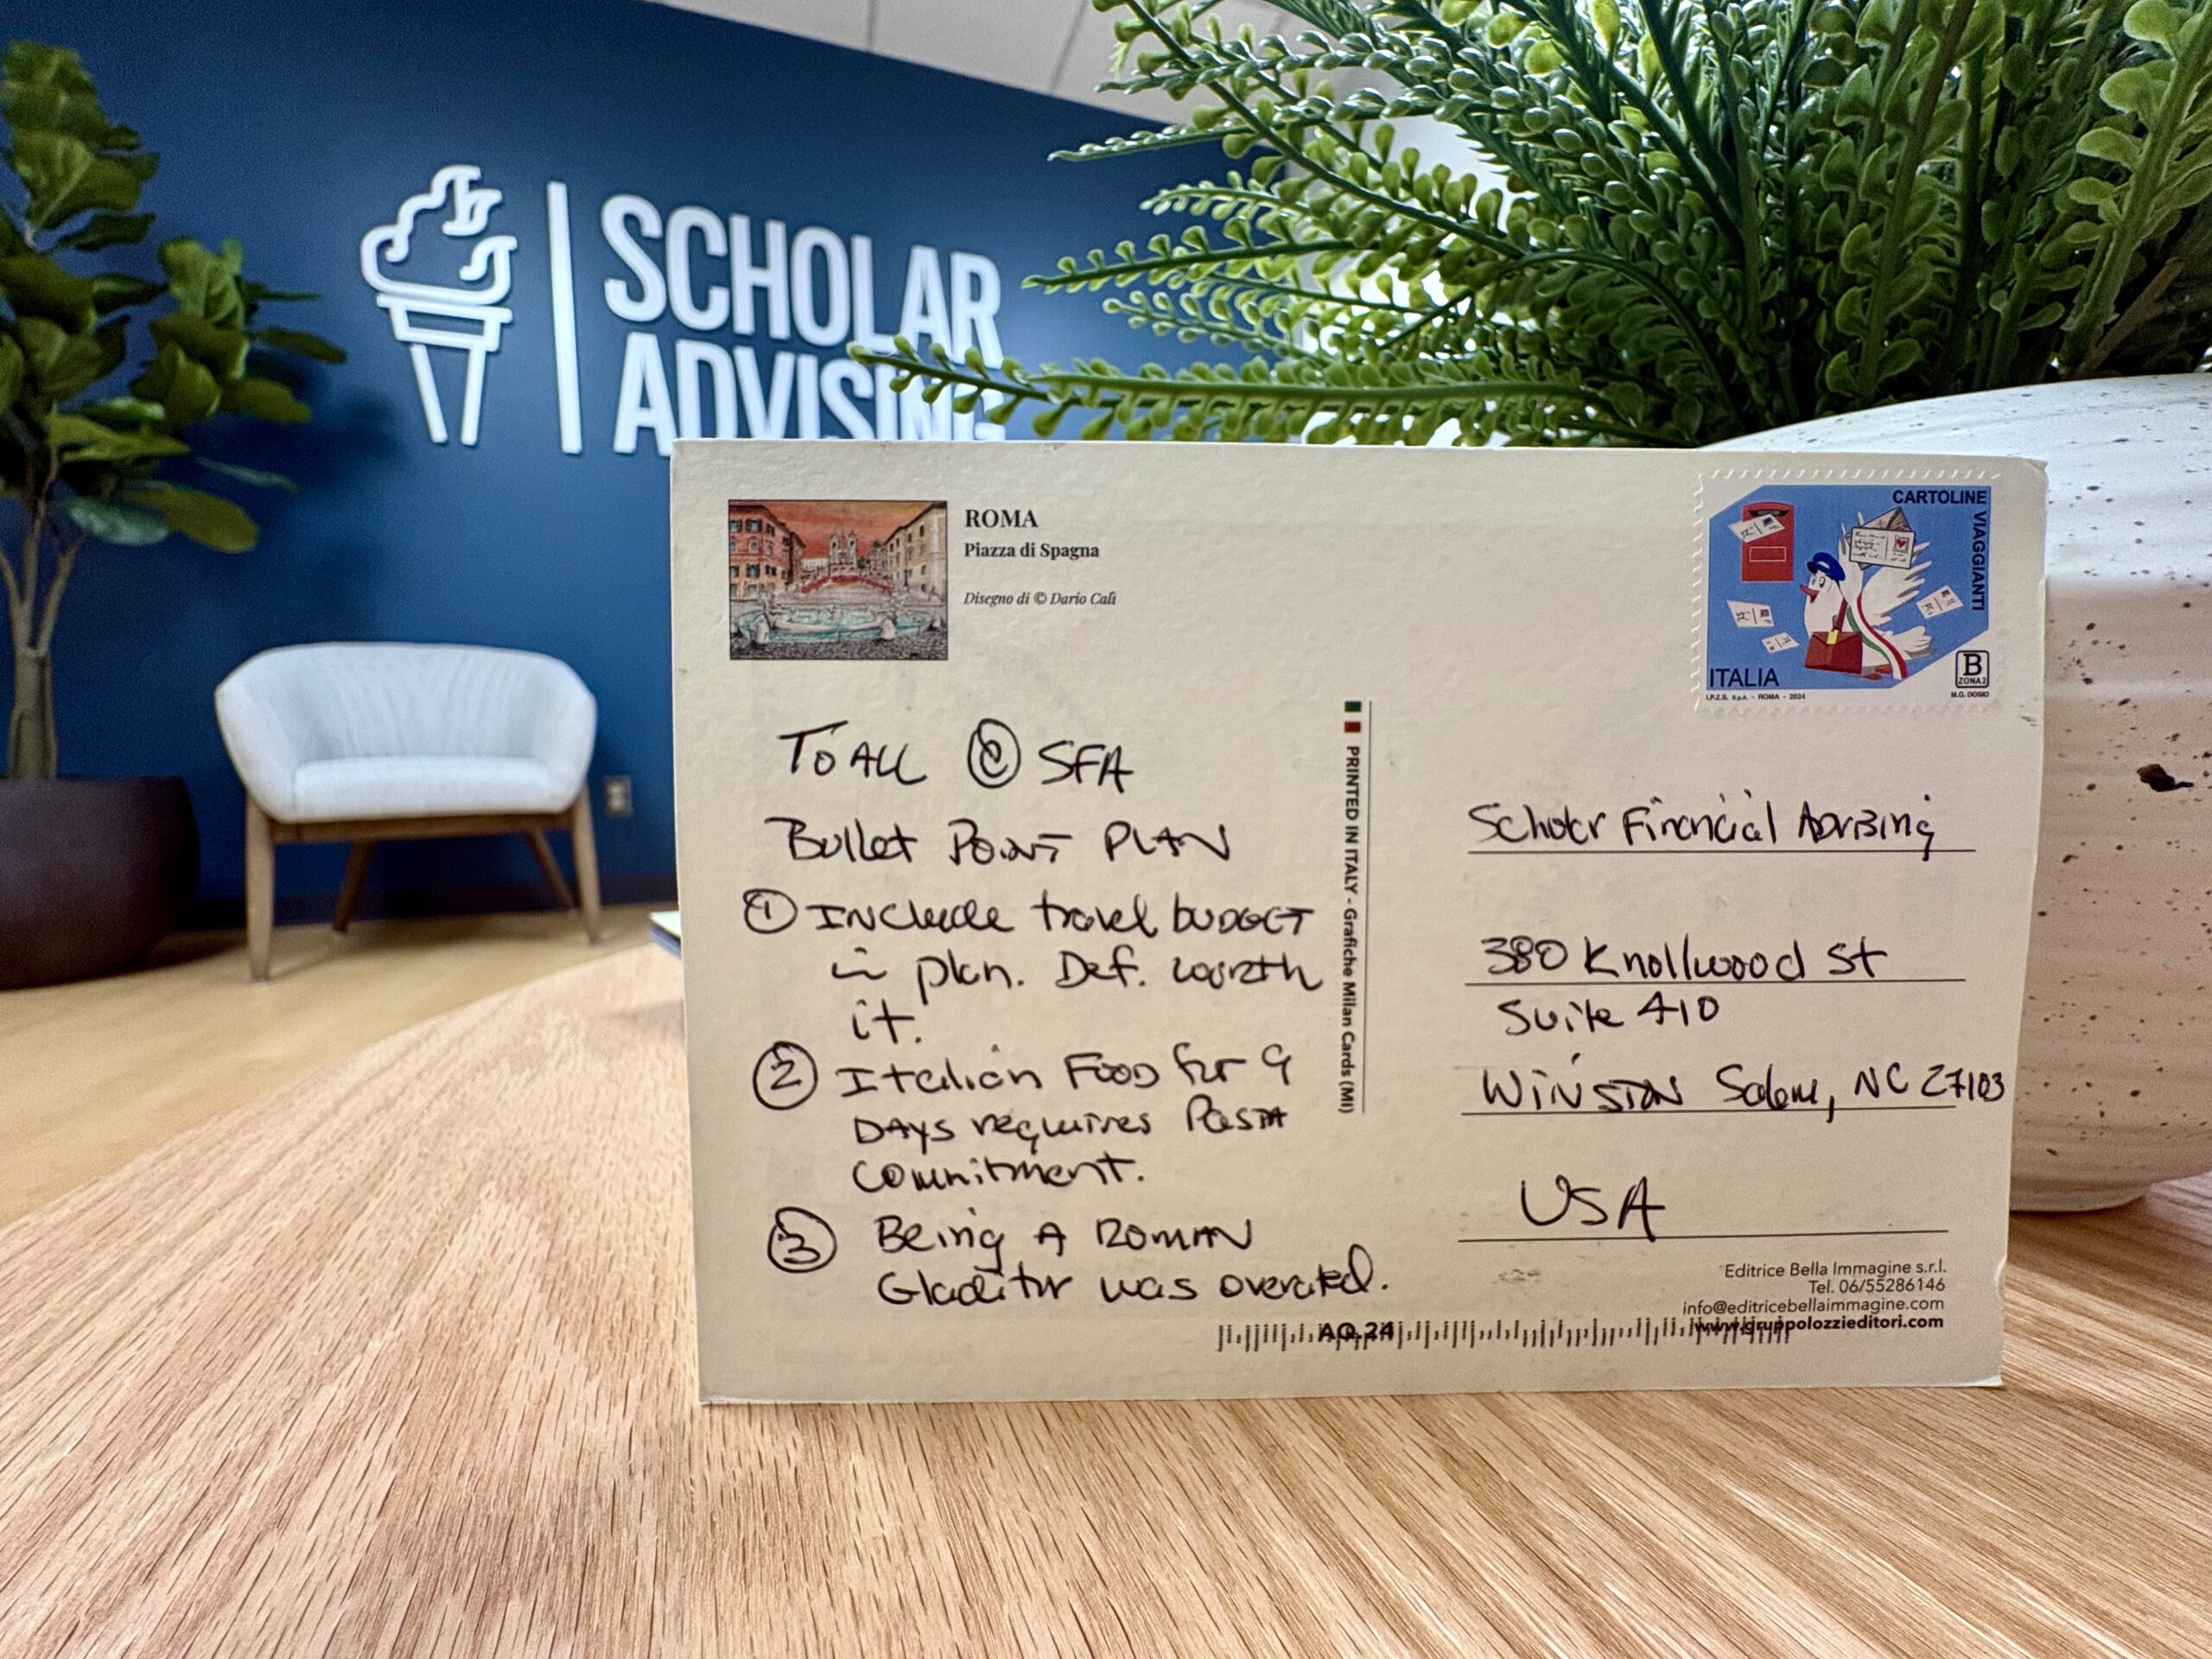 SCHOLAR
ADVISING
ROMA
Piazza di Spagna
Disegno di © Dario Calì
CARTOLINE VIAGGIANTI
ITALIA
B
ZONA 2
I.P.Z.S. S.p.A. - ROMA - 2024
M.G. DOSIO
TO ALL @ SFA
Bullet POINT PLAN
① INclude travel BUDGET
in plan. Def. worth
it.
② Italian FOOD for 9
DAYS requires PASTA
commitment.
③ Being A ROMAN
Gladiator was overated.
PRINTED IN ITALY - Grafiche Milan Cards (MI)
Scholar Financial Advising
380 Knollwood St
Suite 410
WINSTON Salem, NC 27103
USA
Editrice Bella Immagine s.r.l.
Tel. 06/55286146
info@editricebellaimmagine.com
www.gruppolozzieditori.com
AQ 24